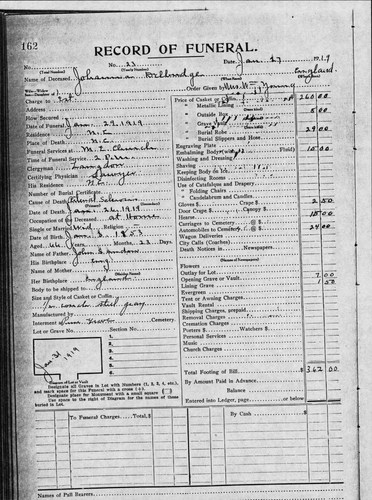 162
RECORD OF FUNERAL.
No. 23 Date, Jan. 27 1919
(Total Number) (Yearly Number)
Name of Deceased, Johannna England
(What Race)
Charge to Est. Order Given by
Address Price of Casket or Coffin 260.00
How Secured Metallic Lining
Date of Funeral Jan. 29, 1919 Outside Box 5 00
Residence N.E. Grave Vault
Place of Death, N.E. Burial Robe 29 00
Funeral Services at M.E. Church Burial Slippers and Hose
Time of Funeral Service 2 P.M. Engraving Plate
Clergyman Embalming Body (with Fluid) 15.00
Certifying Physician Sawyer Washing and Dressing
His Residence N.E. Shaving
Number of Burial Certificate Keeping Body on Ice
Cause of Death Disinfecting Rooms
Date of Death, Jan. 26, 1919 Use of Catafalque and Drapery
Occupation of the Deceased at Home " Folding Chairs
Single or Married Religion " Candelabrum and Candles
Date of Birth, Jan. 3, 1853 Gloves $ Crape $ 2.50
Aged, 66 Years Months 23 Days Door Crape $ Canopy $
Name of Father, John Hearse 15 00
His Birthplace Eng. Carriages to Cemetery @ $
Name of Mother, Automobiles to Cemetery @ $ 24 00
Her Birthplace England Wagon Deliveries
Body to be shipped to City Calls (Coaches)
Size and Style of Casket or Coffin, Death Notices in Newspapers
gray Flowers
Manufactured by Outlay for Lot
Interment Cemetery Opening Grave or Vault 7 00
Lot or Grave No. Section No. Lining Grave 1 50
Evergreen
Tent or Awning Charges
1. Vault Rental
2. Shipping Charges, prepaid
3. Removal Charges
4. Cremation Charges
5. Porters $ Watchers $
6. Personal Services
Jan. 31 1919 Music
Diagram of Lot or Vault Church Charges
Designate all Graves in Lot with Numbers (1, 2, 3, 4, etc.),
and mark space for this Funeral with a cross (+). Total Footing of Bill $362 00
Designate place for Monument with a small square By Amount Paid in Advance
Use space to the right of Diagram for the names of those Balance
buried in Lot. Entered into Ledger, page or below
To Funeral Charges Total, $ By Cash $
Names of Pall Bearers